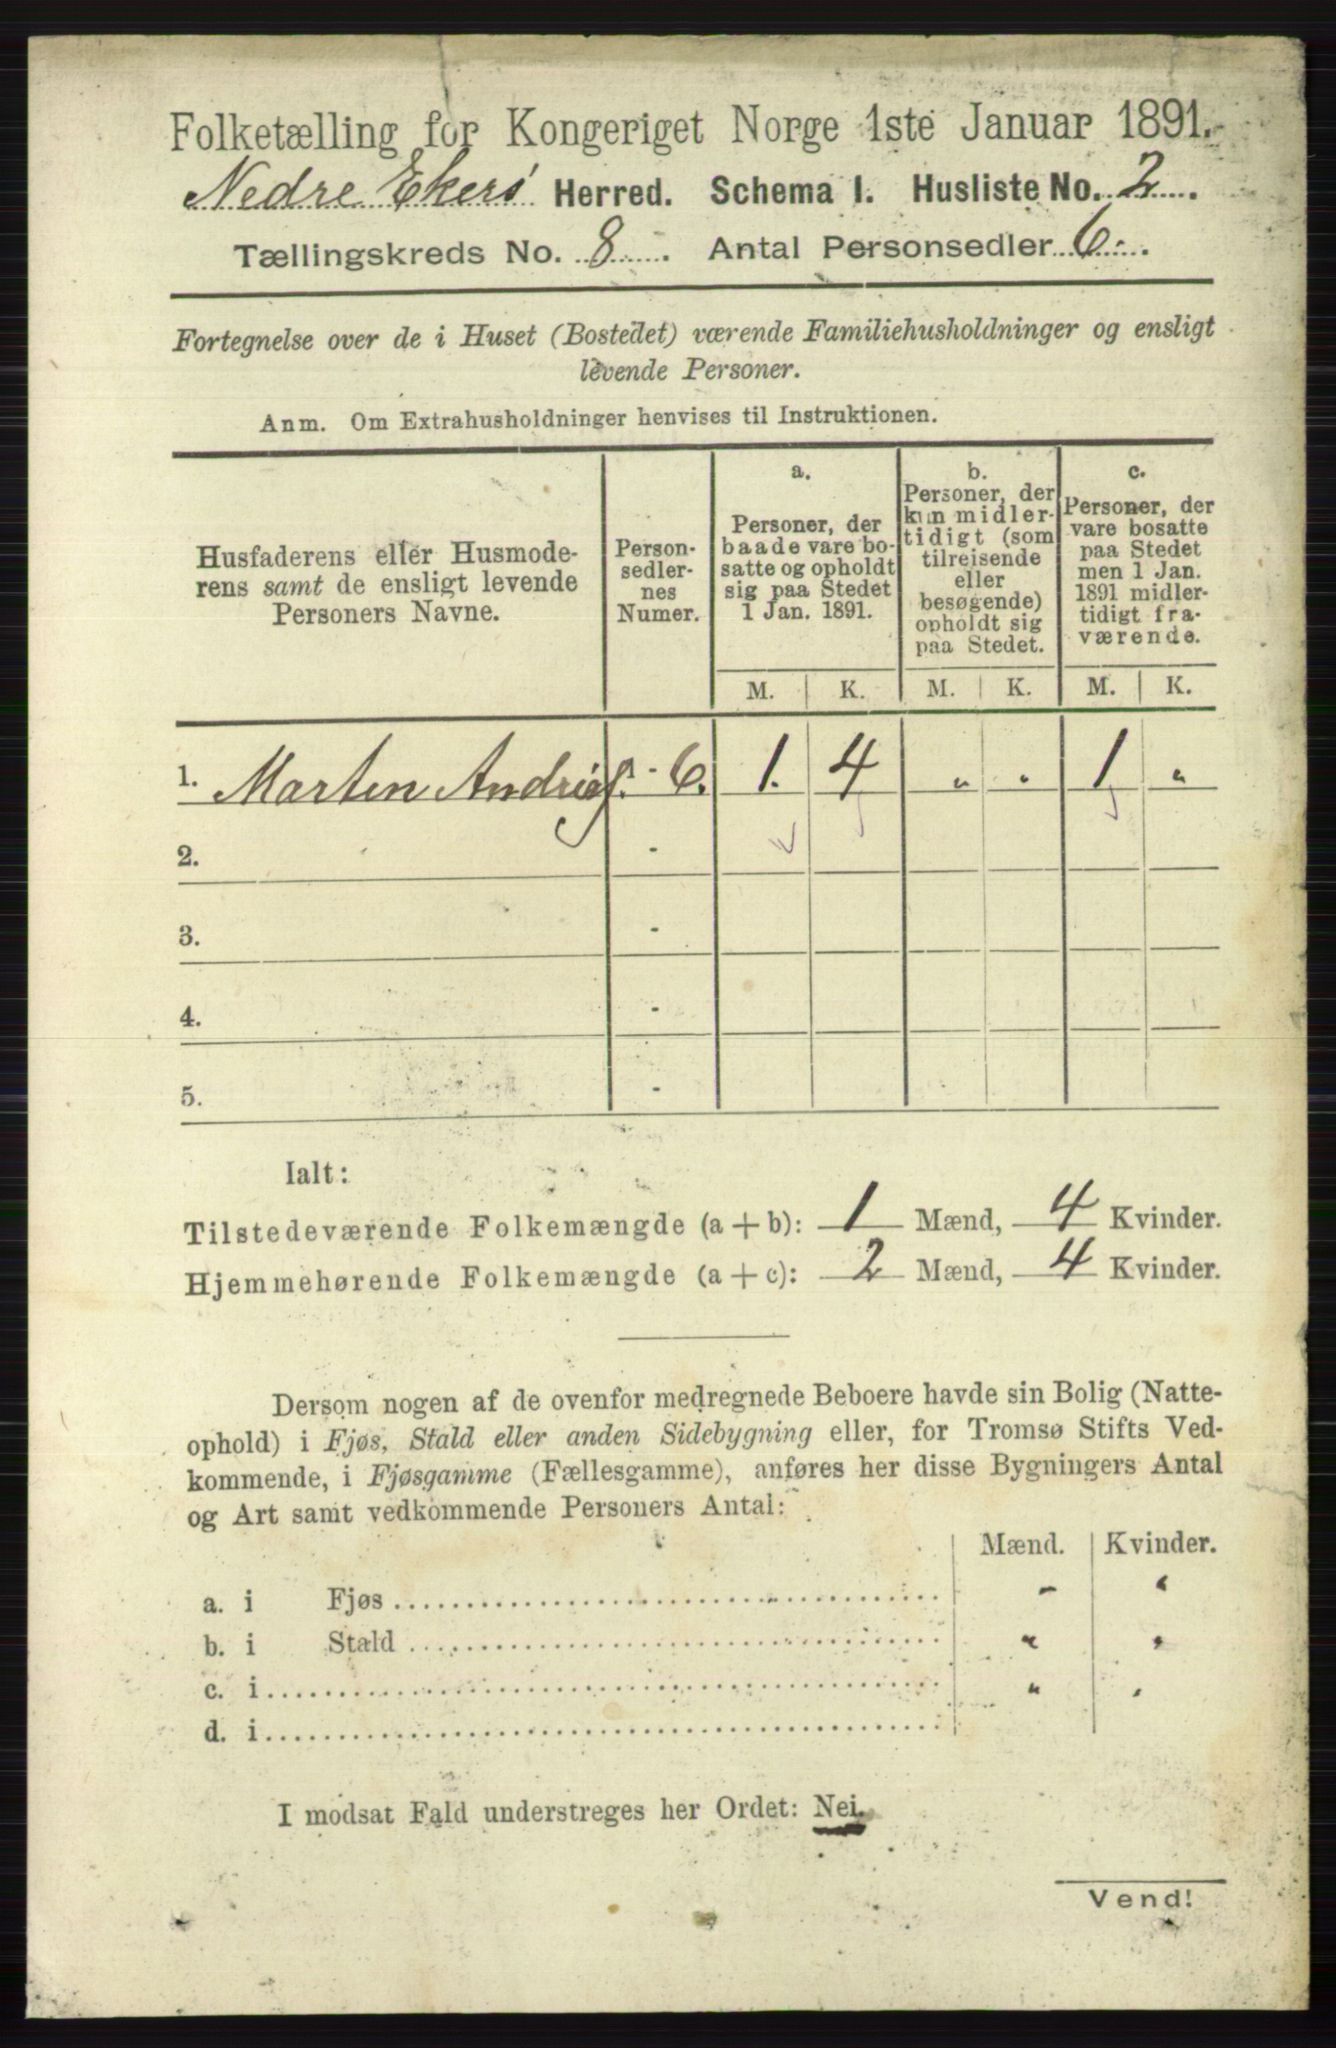 Folketælling for Kongeriget Norge 1ste Januar 1891.
Nedre Ekers Herred. Schema 1. Husliste No. 2.
Tællingskreds No. 8. Antal Personsedler 6.
Fortegnelse over de i Huset (Bostedet) værende Familiehusholdninger og ensligt
levende Personer.
Anm. Om Extrahusholdninger henvises til Instruktionen.
Husfaderens eller Husmode-
rens samt de ensligt levende
Personers Navne.
Person-
sedler-
nes
Numer.
a.
Personer, der
baade vare bo-
satte og opholdt
sig paa Stedet
1 Jan. 1891.
b.
Personer, der
kun midler-
tidigt (som
tilreisende
eller
besøgende)
opholdt sig
paa Stedet.
c.
Personer, der
vare bosatte
paa Stedet
men 1 Jan.
1891 midler-
tidigt fra-
værende.
M. K. M. K. M. K.
1. Marten - 6. 1. 4 " " 1 "
2. -
3. -
4. -
5. -
Ialt:
Tilstedeværende Folkemængde (a + b): 1 Mænd, 4 Kvinder.
Hjemmehørende Folkemængde (a + c): 2 Mænd, 4 Kvinder.
Dersom nogen af de ovenfor medregnede Beboere havde sin Bolig (Natte-
ophold) i Fjøs, Stald eller anden Sidebygning eller, for Tromsø Stifts Ved-
kommende, i Fjøsgamme (Fællesgamme), anføres her disse Bygningers Antal
og Art samt vedkommende Personers Antal:
Mænd. Kvinder.
a. i Fjøs - "
b. i Stald " "
c. i " "
d. i
I modsat Fald understreges her Ordet: Nei.
Vend!